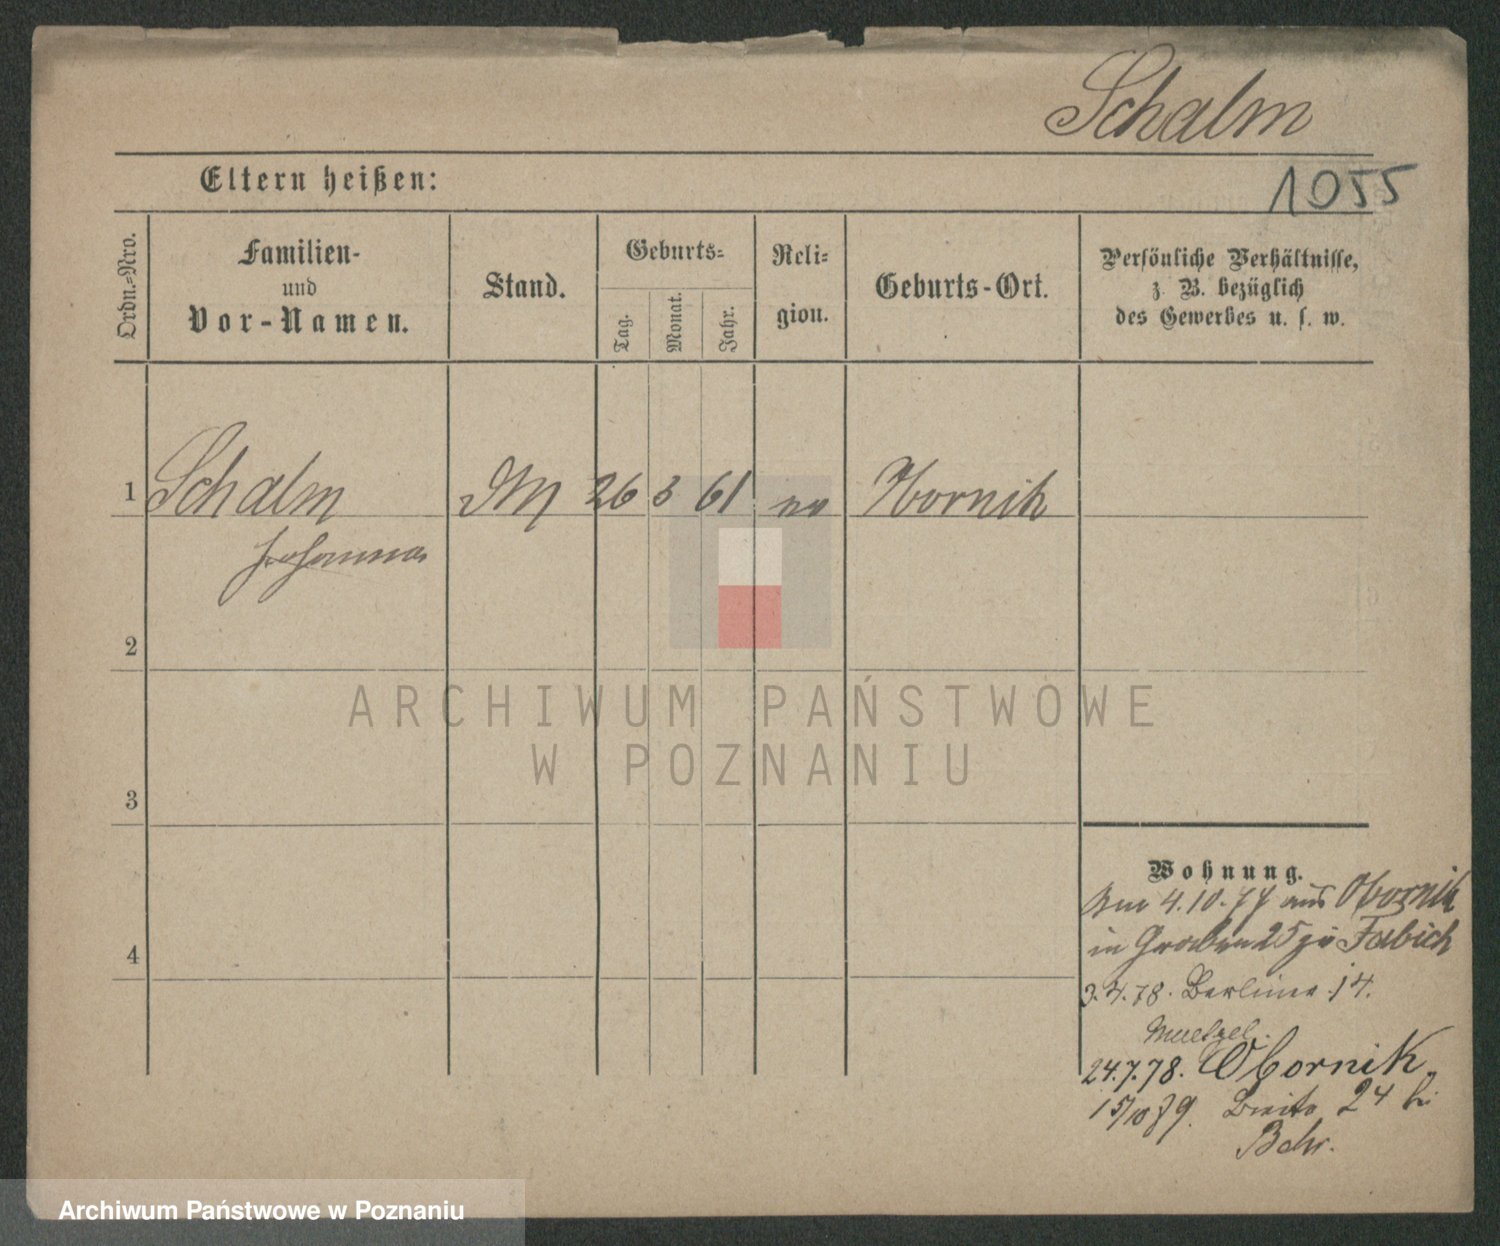 Schalm
Eltern heißen:
1055
Ordn.-Nro.
Familien-
und
Vor-Namen.
Stand.
Geburts-
Tag.
Monat.
Jahr.
Reli-
gion.
Geburts-Ort.
Persönliche Verhältnisse,
z. B. bezüglich
des Gewerbes u. s. w.
1 Schalm 26 3 61 Obornik
Johanna
2
3
4
ARCHIWUM PAŃSTWOWE
W POZNANIU
Wohnung.
4.10.77 aus Obornik
in Graben 25 zu Fabich
3.4.78. Berliner 14.
24.7.78. Obornik
15/10 79. Breite 24 bei
Behr.
Archiwum Państwowe w Poznaniu